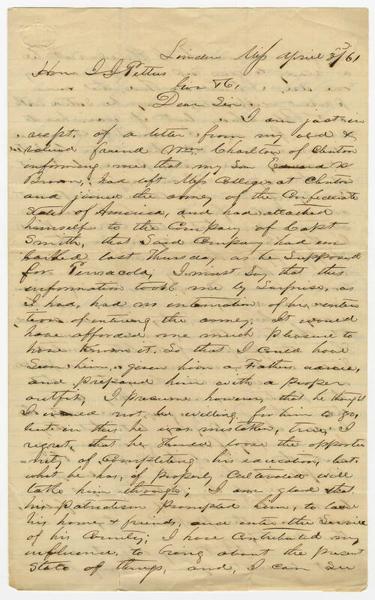 Linden Miss April 3rd/61
Hon J J Pettus
Gov &c,
Dear Sir
I am just in
recept. of a letter from my old &
valued friend Wm Charlton of Clinton
informing me that my Son Edward K
Brown, had left Miss College at Clinton
and joined the army of the Confederate
States of America, and had attached
himself to the Company of Capt
Smith, that Said Company had em
barked last Thursday, as he Supposed
for Pensacola, I must Say that this
information took me by Surprise, as
I had, had no intermation of his, inten
tion of entering the army, It would
have afforded me much pleasure to
have known it, So that I could have
Seen him, given him a Fathers advice,
and prepared him with a proper
outfit, I presume however, that he thought
I would not be willing for him to go,
but in this he was mistaken, true, I
regret, that he Should loose the opportu
nity of completing his education, but
what he has, if properly Cultivated will
take him through; I am glad that
his patriotism prompted him, to leave
his home & friends, and enter the Service
of his Country; I have Contributed my
influence, to bring about the present
State of things, and, I can See